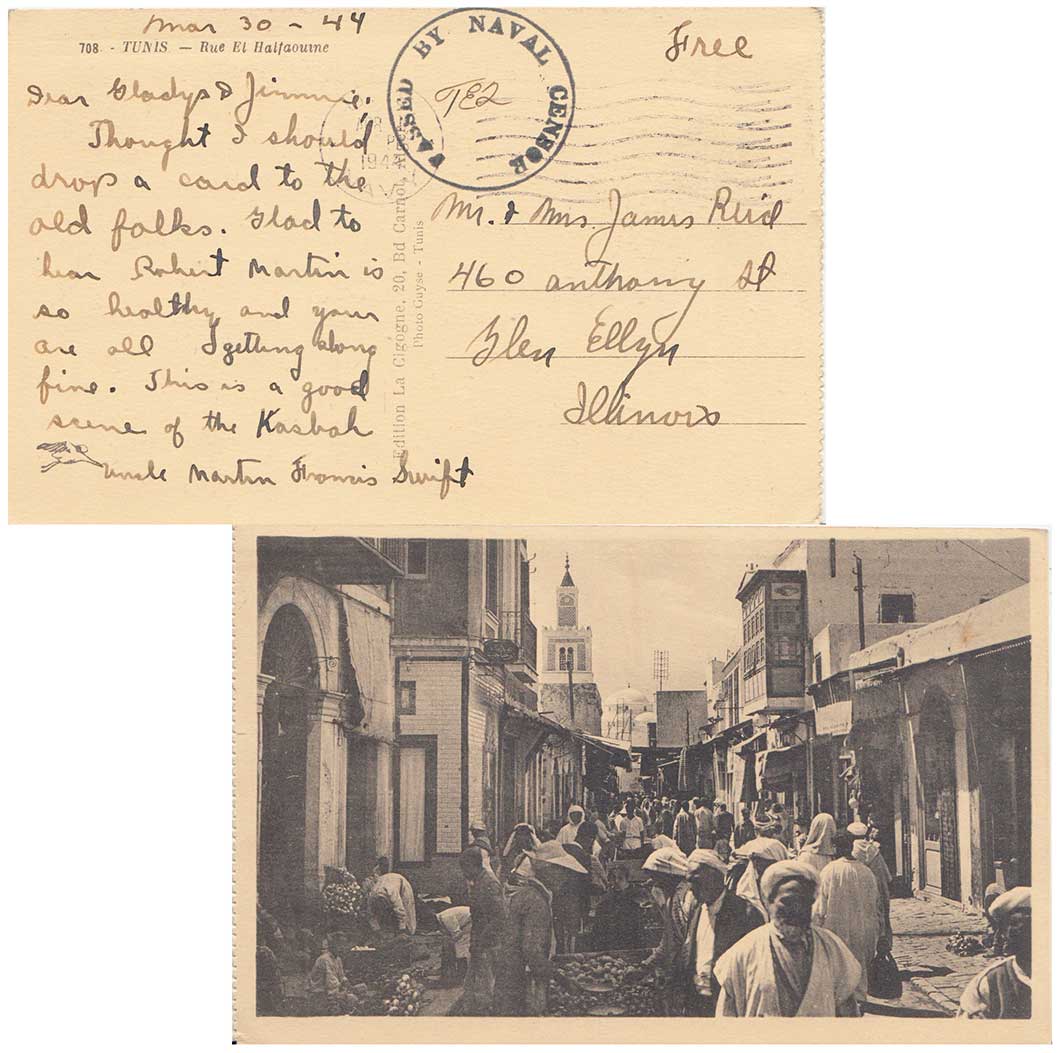 Mar 30 - 44
708 - TUNIS. — Rue El Halfaouine
Free
PASSED BY NAVAL CENSOR
TEL
Dear Gladys & Jimmie,
Thought I should
drop a card to the
old folks. Glad to
hear Robert Martin is
so healthy and your
are all getting along
fine. This is a good
scene of the Kasbah
Uncle Martin Francis Swift
Edition La Cigogne, 20, Bd Carnot,
Photo Gayse - Tunis
Mr. & Mrs James Reid
460 anthony St
Glen Ellyn
Illinois